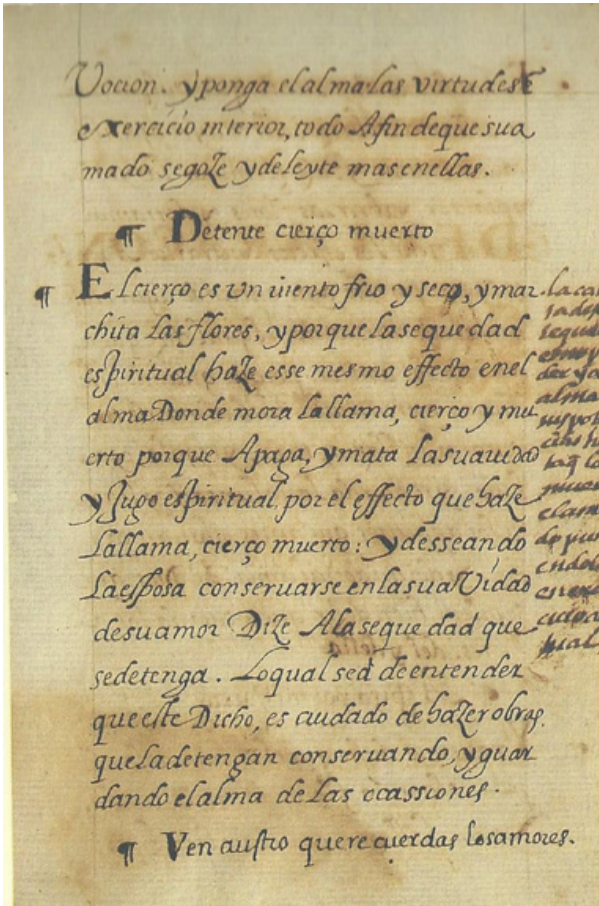 Vocion. y ponga el alma las virtudes e
exercicio interior, todo Afin de que sua
mado se goze y deleyte mas en ellas.
¶ Detente cierço muerto
¶ El cierço es un viento frio y seco, y mar
chita las flores, y porque la sequedad
espiritual haze esse mesmo effecto en el
alma Donde mora la llama, cierço y mu
erto porque Apaga, y mata la suauidad
y Jugo espiritual, por el effecto que haze
la llama, cierço muerto: y desseando
la esposa conservarse en la sua Vidad
de su amor Dize A la sequedad que
se detenga. Lo qual se ade entender
que este Dicho, es cuidado de hazer obras,
que la detengan conservando, y guar
dando el alma de las ocassiones.
¶ Ven austro que recuerdas los amores.
alma